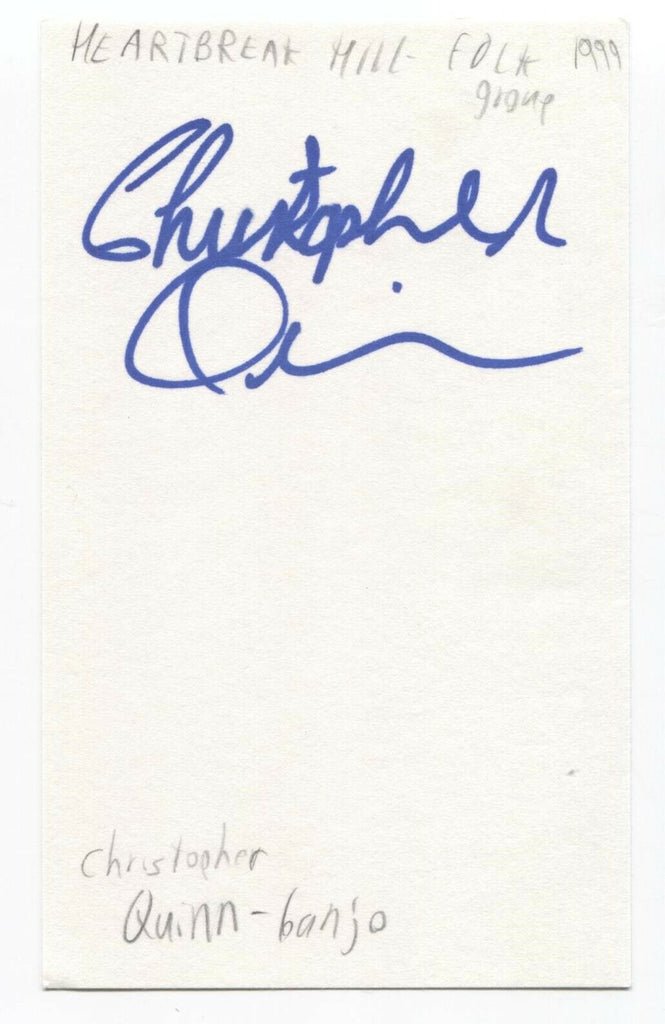 HEARTBREAK HILL - FOLK 1999
group
Christopher
Quinn
Christopher
Quinn - banjo